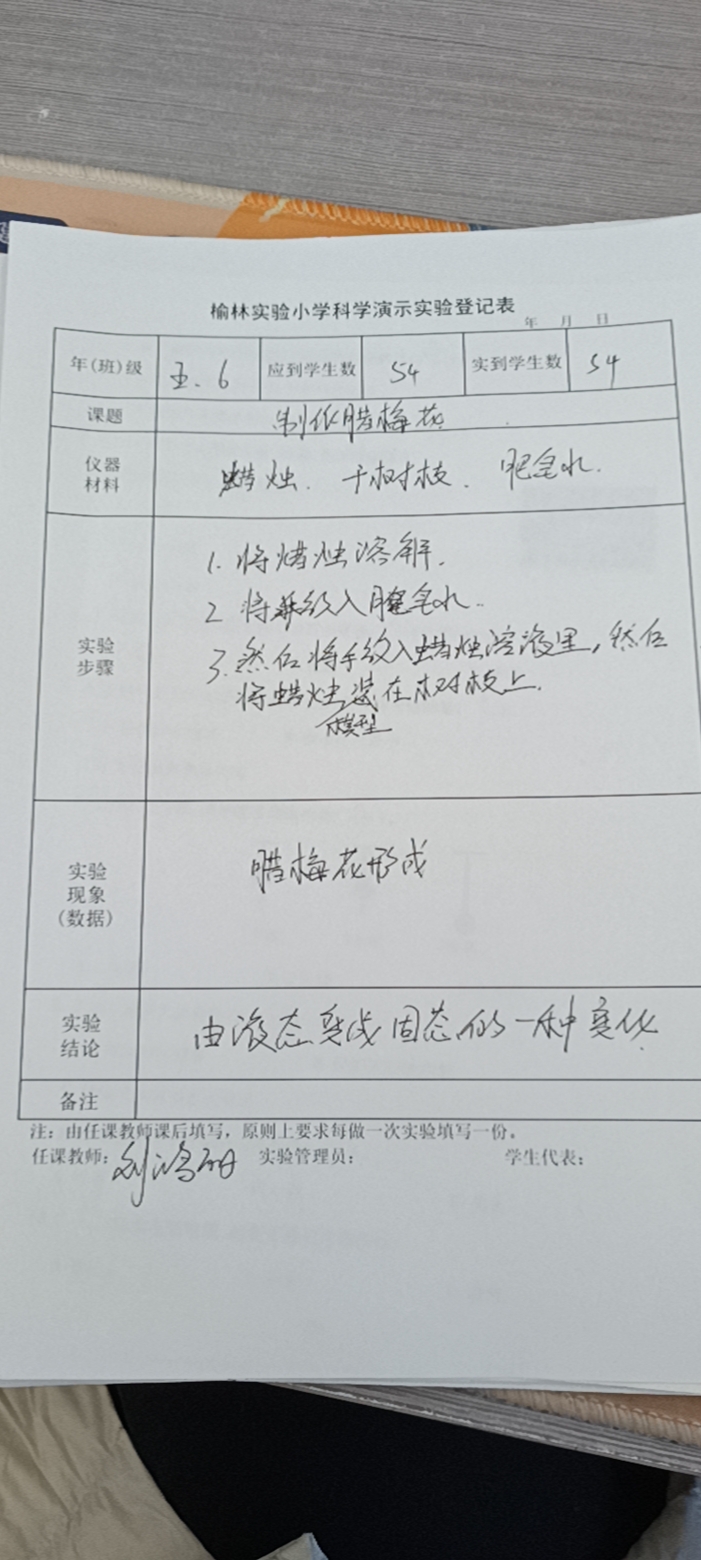 榆林实验小学科学演示实验登记表
年 月 日
年(班)级 五.6 应到学生数 54 实到学生数 54
课题 制作腊梅花
仪器材料 蜡烛. 干树枝. 肥皂水.
实验步骤
1. 将蜡烛溶解.
2. 将手放入肥皂水.
3. 然后将手放入蜡烛溶液里,然后
将蜡烛模型装在树枝上.
实验现象(数据) 腊梅花形成
实验结论 由液态变成固态的一种变化
备注
注:由任课教师课后填写,原则上要求每做一次实验填写一份。
任课教师: 实验管理员: 学生代表: